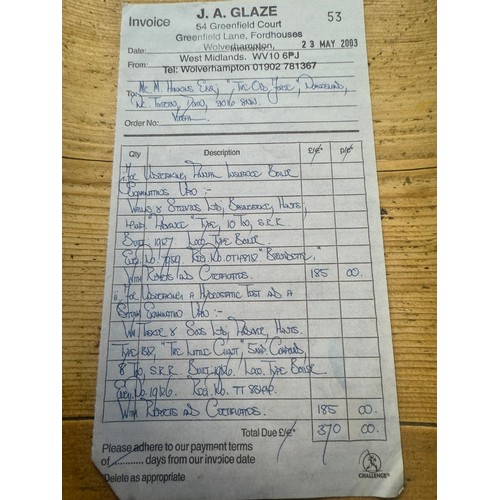 Invoice
J. A. GLAZE
53
54 Greenfield Court
Greenfield Lane, Fordhouses
Wolverhampton,
Date:
23 MAY 2003
West Midlands. WV10 6PJ
From:
Tel: Wolverhampton 01902 781367
To: Mr. M. Hawkins Esq, "The Old Forge",
Order No: Verbal
Qty Description £/€ p/c
i. For Undertaking Annual Insurance Boiler
Examination Upon :-
Wallis & Steevens Ltd, Basingstoke, Hants,
"Advance" Type, 10 Ton, S.R.R.
Built 1927 Loco Type Boiler
Eng. No. 7989. Reg. No. OT "Benedictine"
With Reports and Certificates. 185 00.
ii. For Undertaking a Hydrostatic Test and a
Steam Examination Upon :-
Wm & Sons Ltd, Hants.
Type "The Little Giant",
8 Ton, S.R.R. Built 1926. Loco Type Boiler
Eng. No. Reg. No. TT
With Reports and Certificates. 185 00.
Total Due £/€ 370 00.
Please adhere to our payment terms
of........... days from our invoice date
Delete as appropriate
CHALLENGE